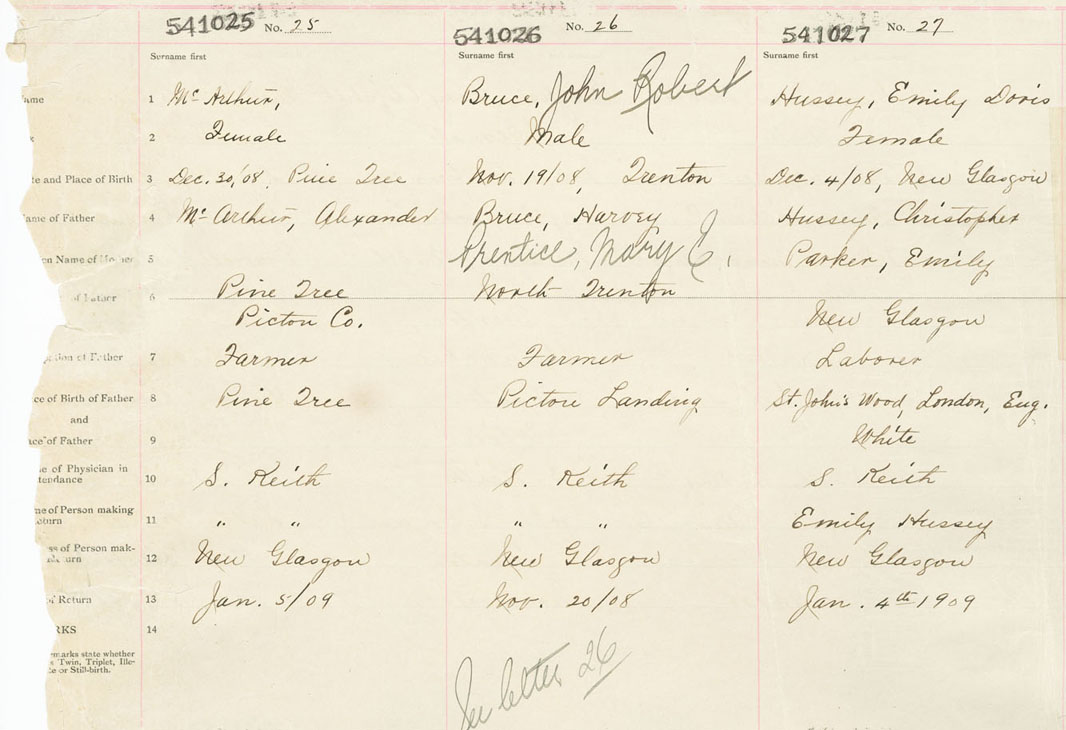 541025 No. 25 541026 No. 26 541027 No. 27
Surname first Surname first Surname first
ame 1 Mc Arthur, Bruce, John Robert Hussey, Emily Doris
2 Female Male Female
te and Place of Birth 3 Dec. 30,'08, Pine Tree Nov. 19/08, Trenton Dec. 4/08, New Glasgow
ame of Father 4 Mc Arthur, Alexander Bruce, Harvey Hussey, Christopher
en Name of Mother 5 Prentice, Mary E. Parker, Emily
of Father 6 Pine Tree North Trenton
Picton Co. New Glasgow
ation of Father 7 Farmer Farmer Laborer
ce of Birth of Father 8 Pine Tree Pictou Landing St. John's Wood, London, Eng.
and
ace of Father 9 White
e of Physician in
tendance 10 S. Keith S. Keith S. Keith
me of Person making
eturn 11 " " " " Emily Hussey
ss of Person mak-
urn 12 New Glasgow New Glasgow New Glasgow
of Return 13 Jan. 5/09 Nov. 20/08 Jan. 4th 1909
RKS 14
marks state whether
s Twin, Triplet, Ille-
te or Still-birth.
See letter 26